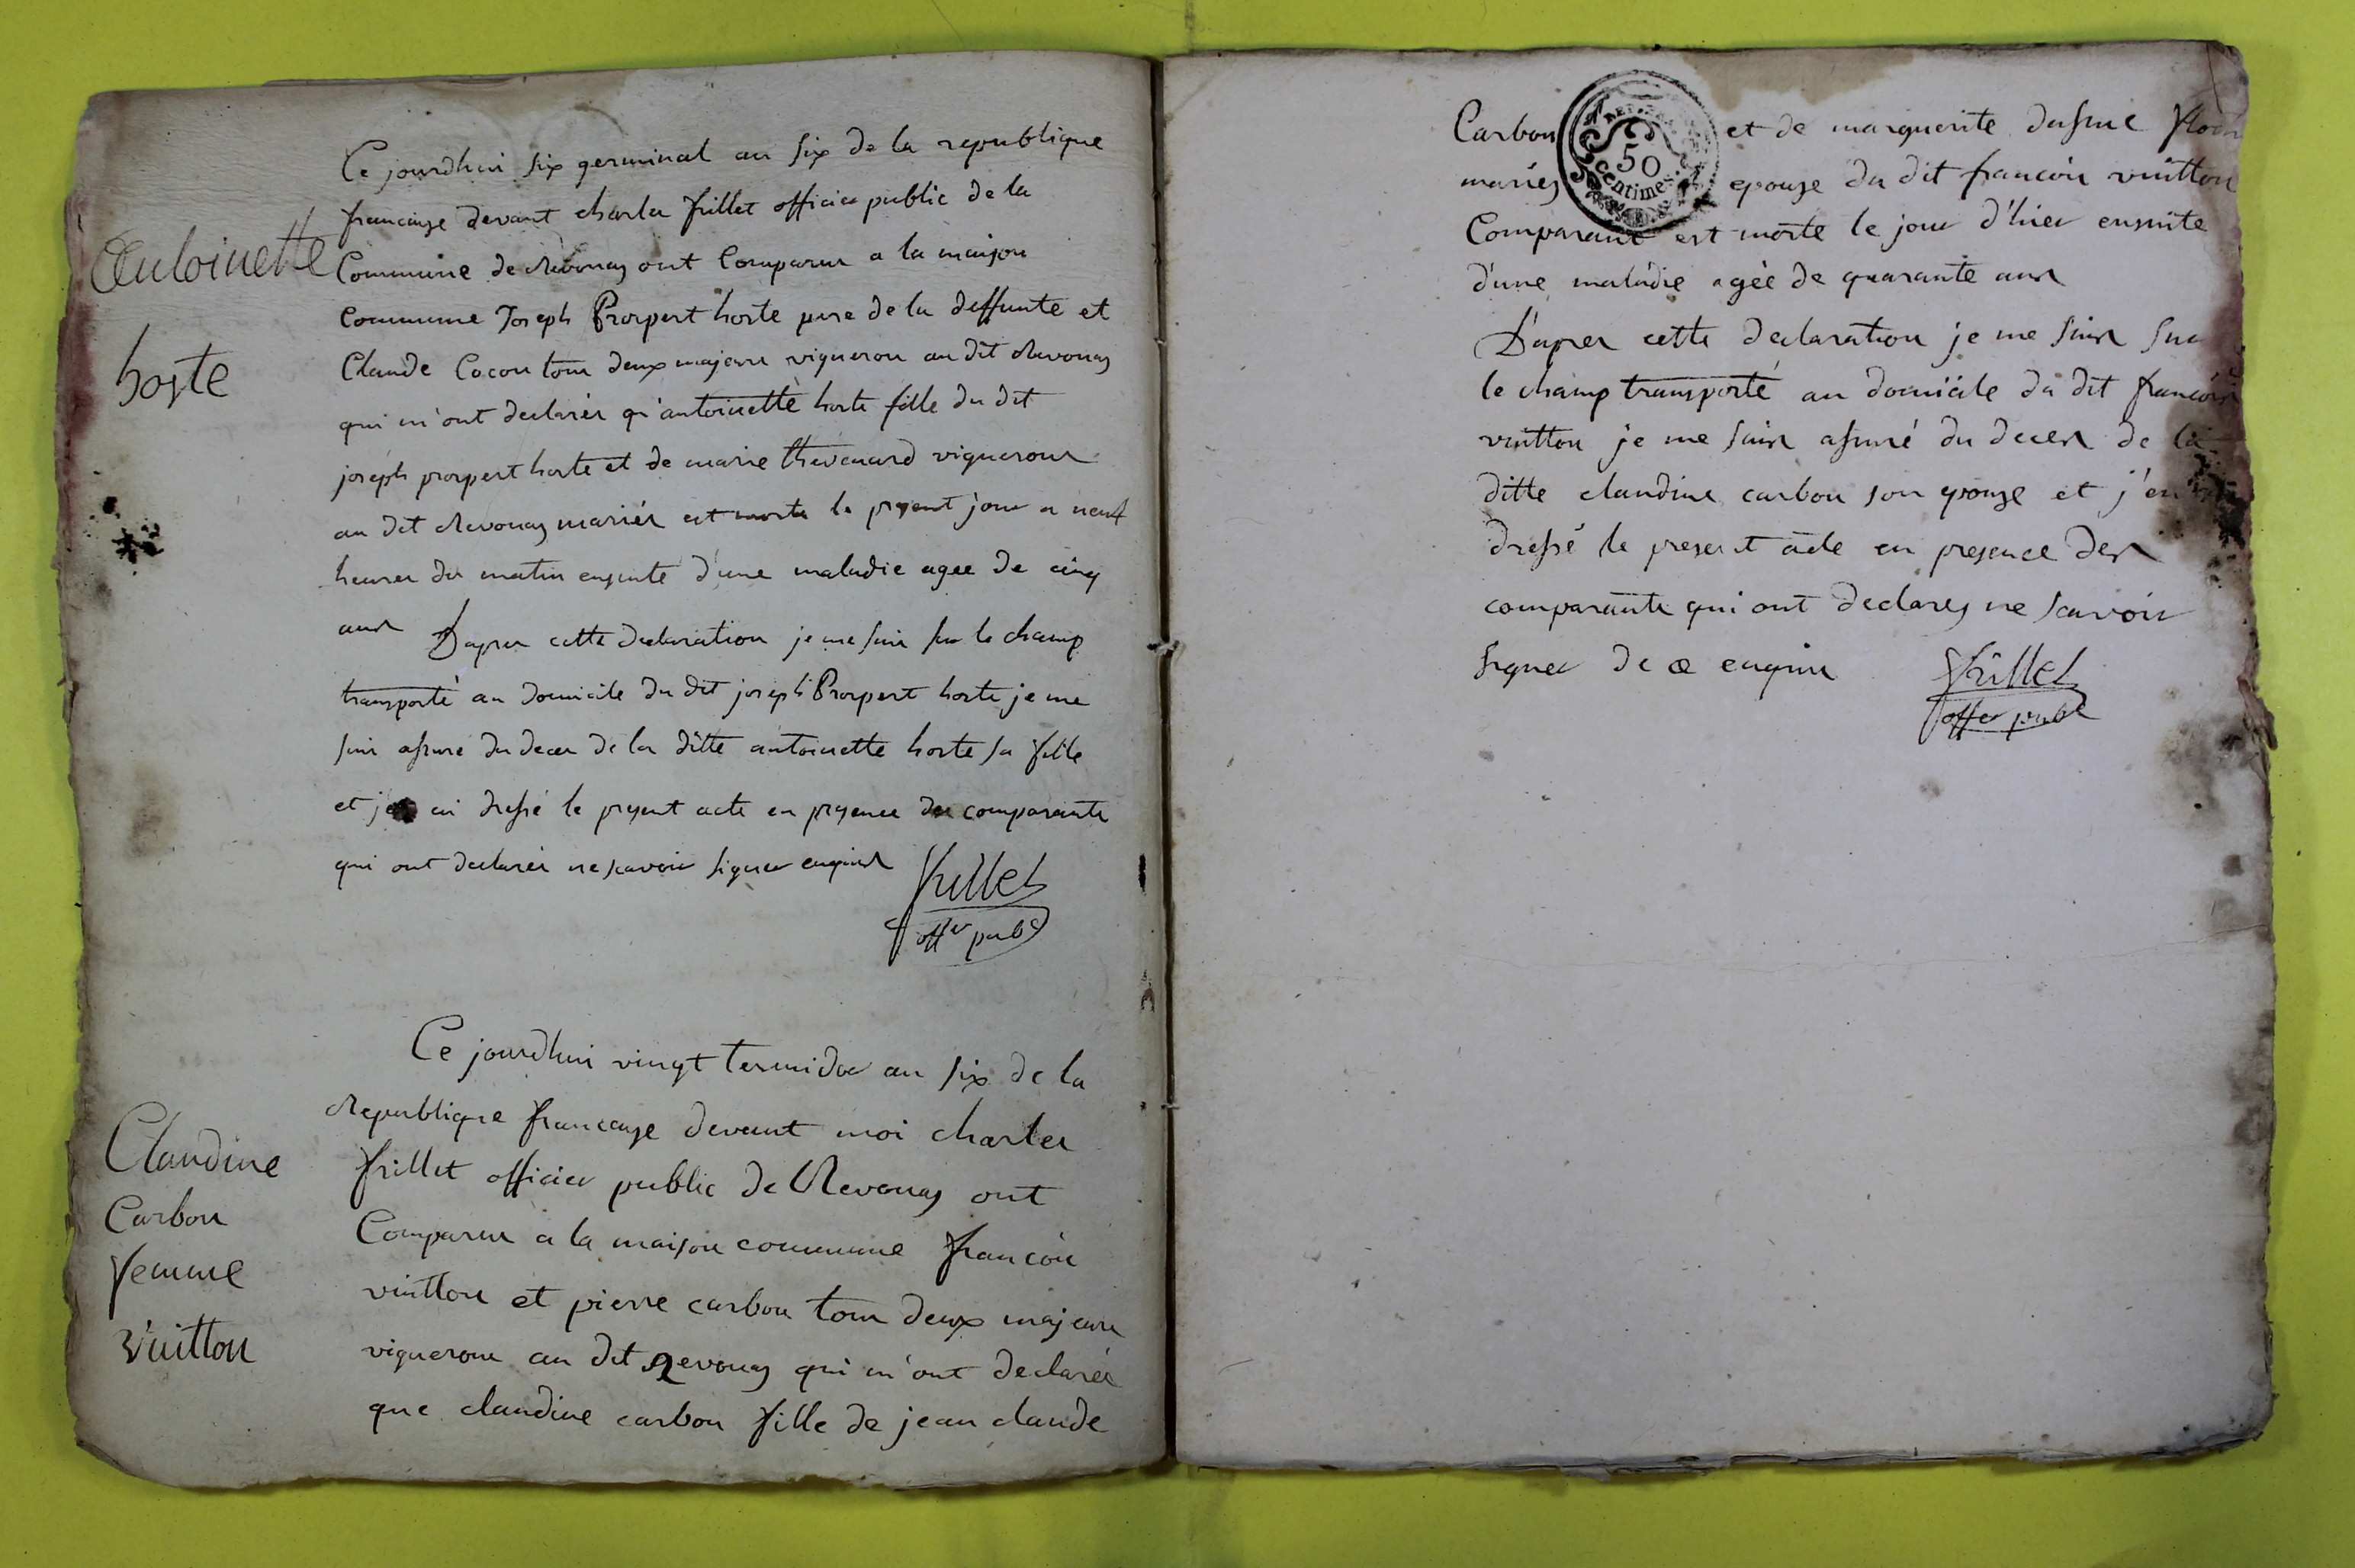 Antoinette
hoste
Ce jourdhui six germinal an six de la republique
francaise devant charles frillet officier public de la
Commune de Revonas ont Comparus a la maison
Commune Joseph Prospert hoste pere de la deffunte et
Claude Cocon tous deux majeurs vigneron au dit Revonas
qui m'ont declarés qu'antoinette hoste fille du dit
joseph prospert hoste et de marie thevenard vignerons
au dit Revonas mariés est morte le present jour a neuf
heures du matin ensuite d'une maladie agee de cinq
ans Dapres cette declaration je me suis sur le champ
transporté au domicile du dit joseph Prospert hoste je me
suis assuré du deces de la ditte antoinette hoste sa fille
et j en dressé le present acte en presence des comparants
qui ont declarés ne scavoir signer enquis
frillet
offer pube
Claudine
Carbon
femme
Vuitton
Ce jourdhui vingt termidor an six de la
Republique francaise devant moi charles
frillet officier public de Revonas ont
Comparus a la maison commune francois
vuitton et pierre carbon tous deux majeurs
vignerons au dit Revonas qui m'ont declarés
que claudine carbon fille de jean claude
Carbon et de marguerite
mariés epouse du dit francois vuitton
Comparant est morte le jour d'hier ensuite
d'une maladie agée de quarante ans
D'apres cette declaration je me suis sur
le champ transporté au domicile du dit francois
vuitton je me suis assuré du deces de la
ditte claudine carbon son epouse et j'en
dressé le present acte en presence des
comparants qui ont declarés ne scavoir
signer de ce enquis
frillet
offer pube
50
centimes